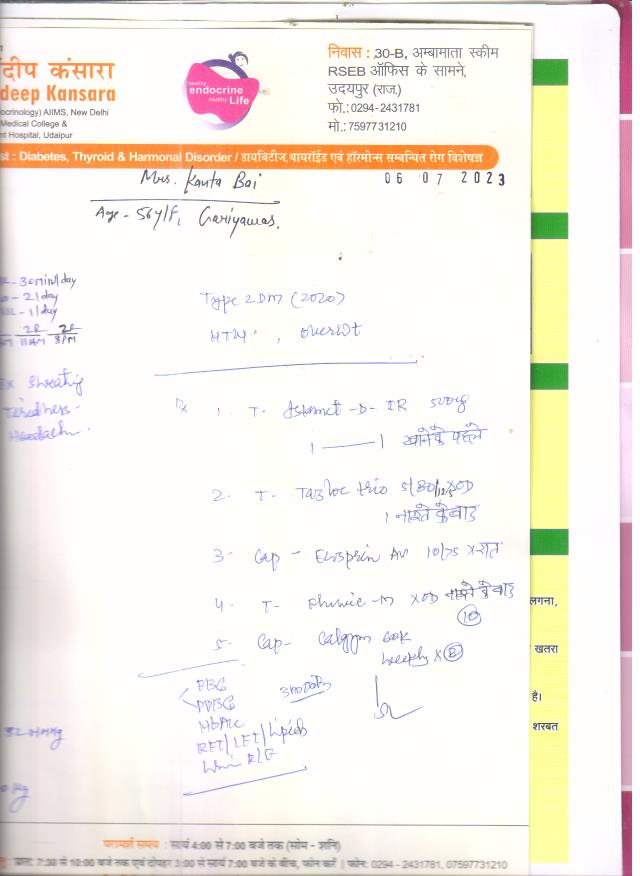 दीप कंसारा
deep Kansara
ocrinology) AIIMS, New Delhi
Medical College &
nt Hospital, Udaipur
healthy
endocrine
healthy Life
निवास : 30-B, अम्बामाता स्कीम
RSEB ऑफिस के सामने,
उदयपुर (राज.)
फो.:0294-2431781
मो.:7597731210
st : Diabetes, Thyroid & Harmonal Disorder / डायबिटीज, थायरॉईड एवं हॉरमोन्स सम्बन्धित रोग विशेषज्ञ
Mrs. Kanta Bai
06 07 2023
Age - 56y/F, Gariyawas.
- 30 min/day
- 2/day
- 1/day
2R 2R
11AM 8PM
Sweating
Tiredness -
Headach
Type 2 DM (2020)
HTN , overwt
Rx 1. T- -D- IR 500
1 ——— 1 खाने के पहले
2. T- Tazloc trio 5/80/12.5 x OD
1 नाश्ते के बाद
3- Cap - Ecosprin AV 10/75 x रात
4. T- -M x OD नाश्ते के बाद
10
5- Cap- 60K
weekly x 8
FBG
PPBG
3 months
HbA1c
RFT/LFT/Lipids
Urine R/E
लगना,
खतरा
है।
शरबत
kg
परामर्श समय : सायं 4:00 से 7:00 बजे तक (सोम - शनि)
: प्रात: 7:30 से 10:00 बजे तक एवं दोपहर 3:00 से सायं 7:00 बजे के बीच, फोन करें | फोन: 0294 - 2431781, 07597731210